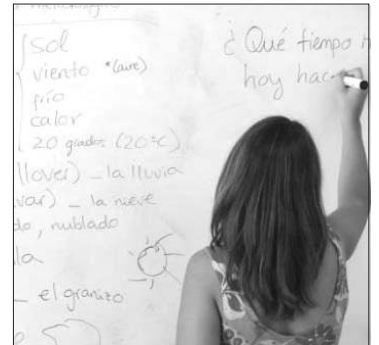 sol
viento *(aire)
frío
calor
20 grados (20ºC)
llover) - la lluvia
var) - la nieve
do, nublado
la
- el granizo
¿Qué tiempo h
hoy hac